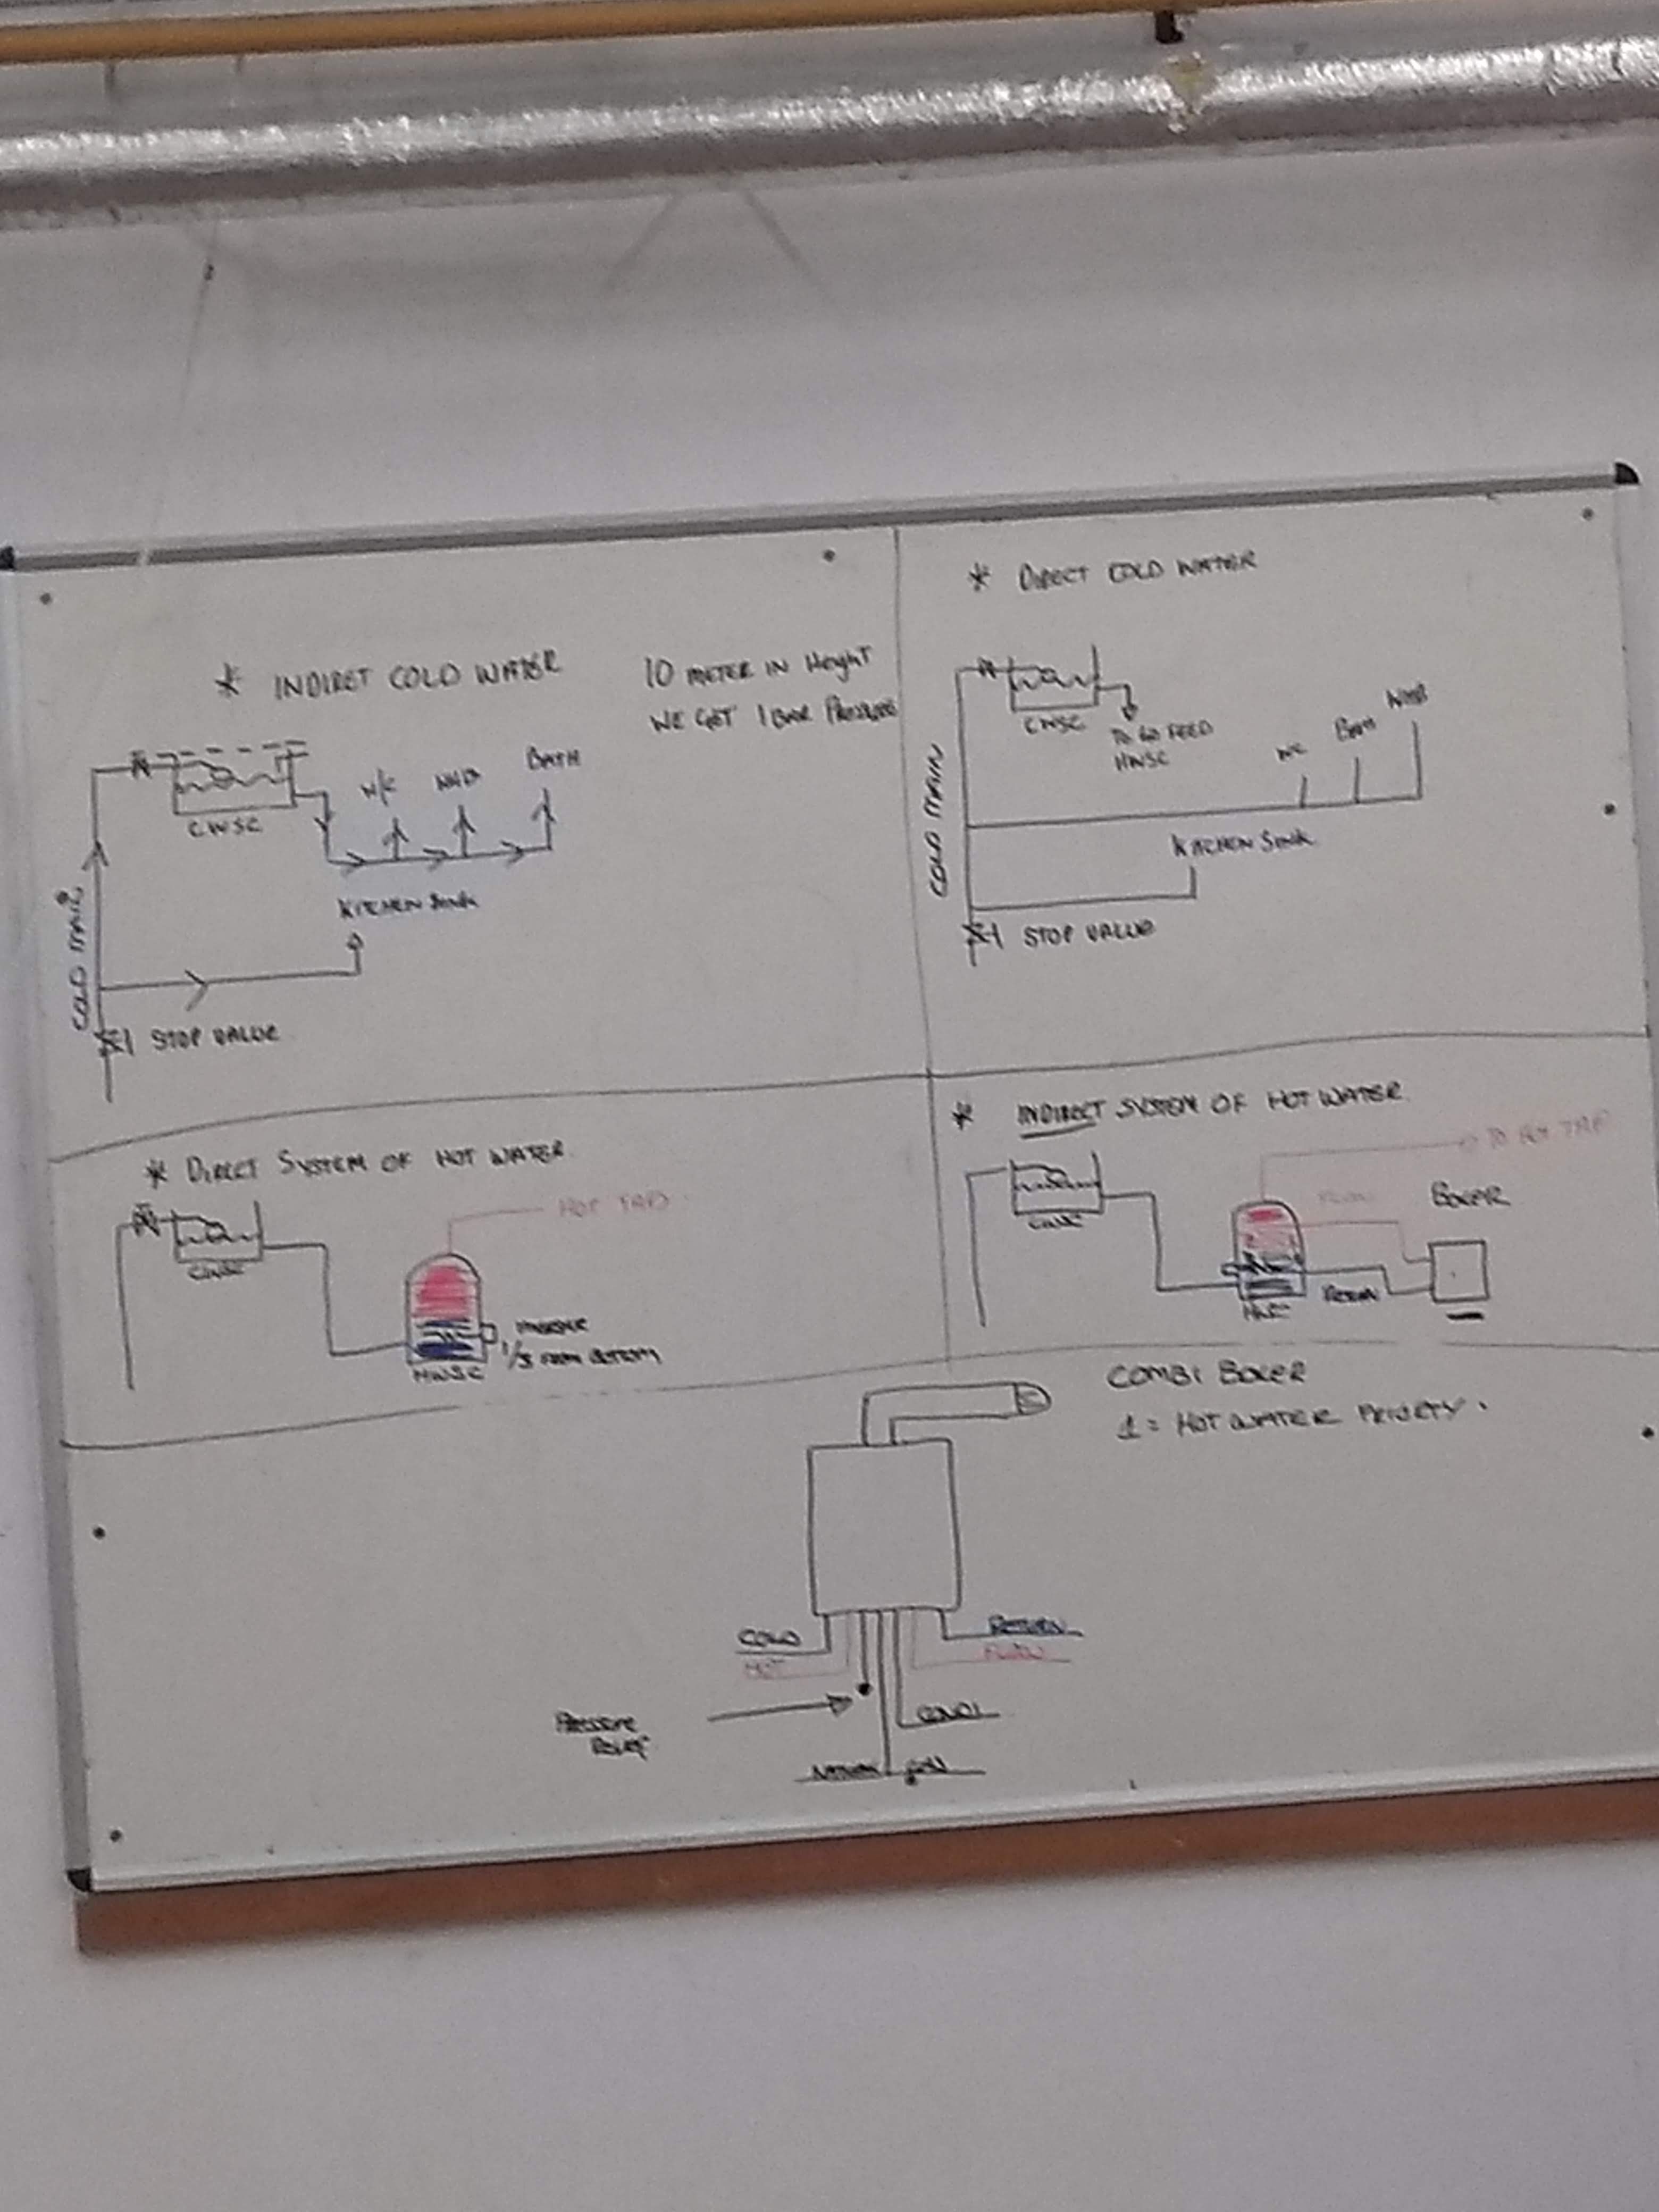 * INDIRET COLD WATER
10 METER IN HeighT
WE GET 1 BAR PRESSURE
CWSC
W/C
WHB
BATH
KITCHEN SINK
COLD MAIN
STOP VALUE
* DIRECT COLD WATER
CWSC
TO GO FEED
HWSC
WC
BATH
WHB
COLD MAIN
KITCHEN SINK
STOP VALUE
* DIRECT SYSTEM OF HOT WATER.
CWSC
HOT TAP
HWSC
1/3 FROM BOTTOM
* INDIRECT SYSTEM OF HOT WATER.
CWSC
TO HOT TAP
FLOW
BOILER
RETURN
HWSC
COMBI BOILER
1 = HOT WATER PRIORTY.
COLD
HOT
RETURN
FLOW
PRESSURE
RELIEF
COND1
NATURAL GAS